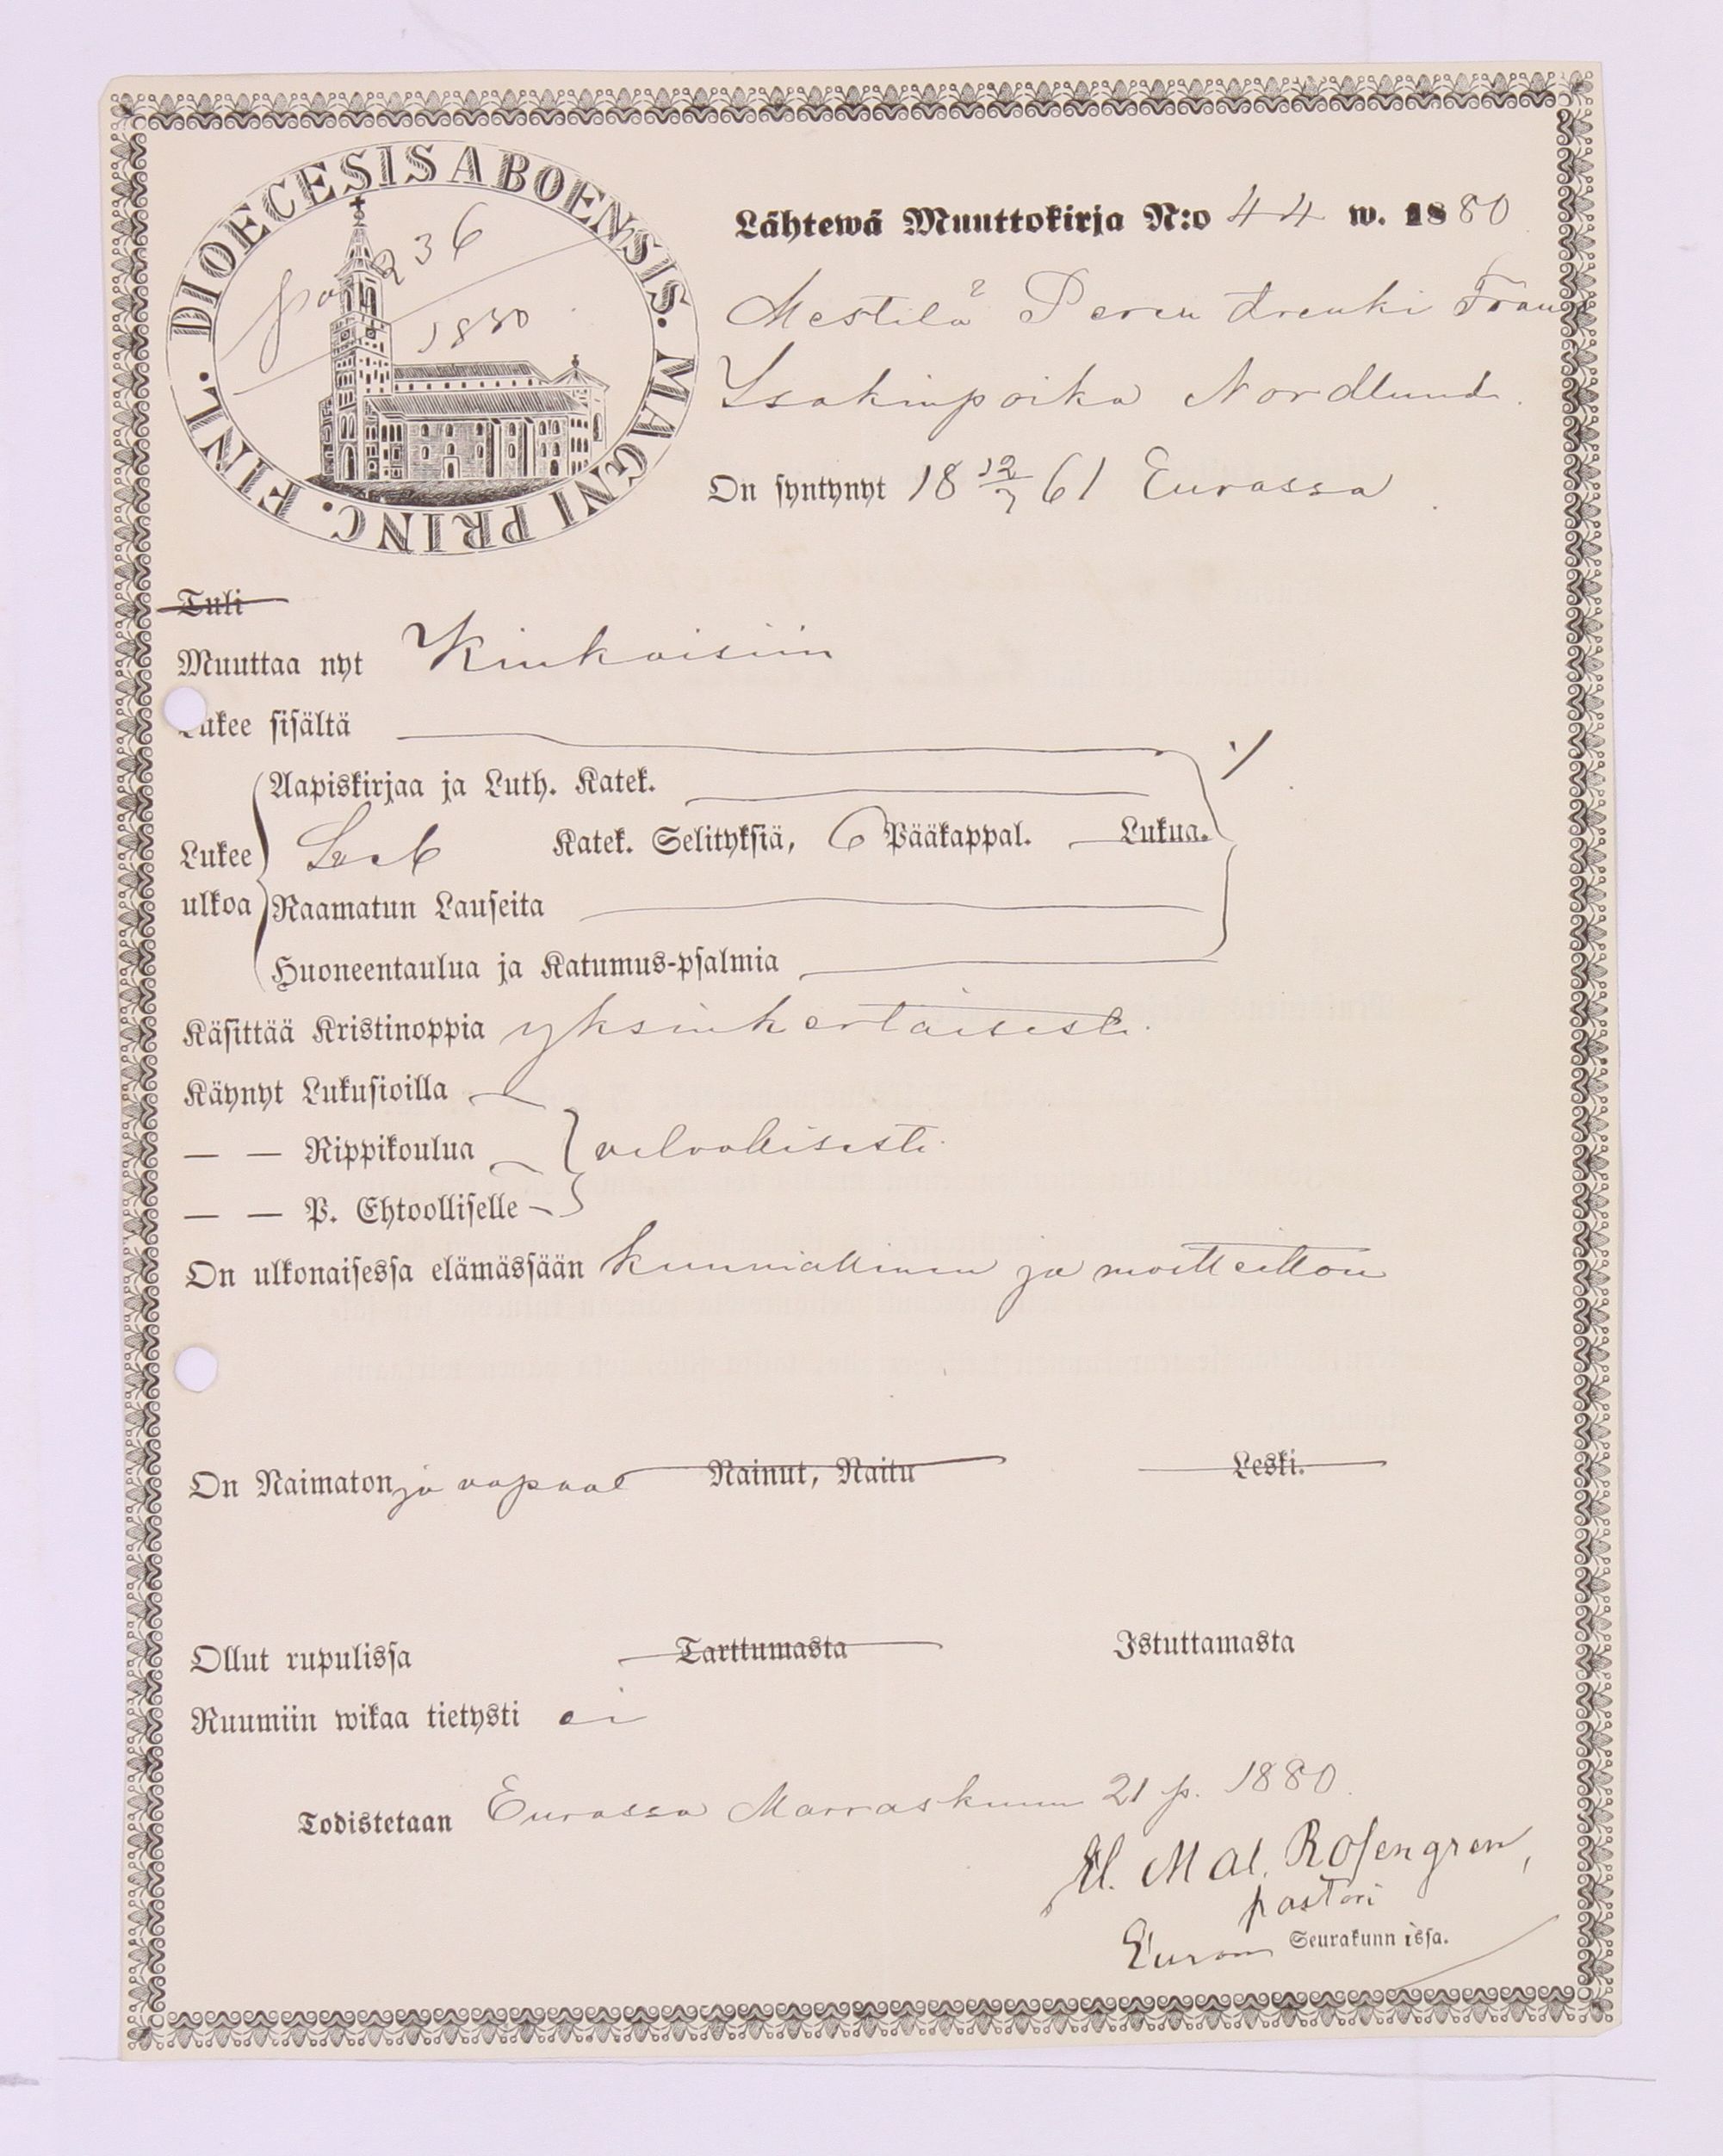 DIOECESIS ABOENSIS. MAGNI PRINC. FINL.
236
1880
Lähtewä Muuttokirja N:o 44 w. 1880
Mestilä 2 Peren drenki Frans
Isakinpoika Nordlund.
On syntynyt 18 12/7 61 Eurassa
Tuli
Muuttaa nyt Kiukaisiin
Lukee sisältä
Aapiskirjaa ja Luth. Katek.
Lukee ulkoa Katek. Selityksiä, 6 Pääkappal. Lukua.
Raamatun Lauseita
Huoneentaulua ja Katumus-psalmia
Käsittää Kristinoppia yksinkertaisesti.
Käynyt Lukusioilla
— — Rippikoulua
— — P. Ehtoolliselle
On ulkonaisessa elämässään kunniallinen ja moitteeton
On Naimaton ja vapaa Nainut, Naitu Leski.
Ollut rupulissa Tarttumasta Istuttamasta
Ruumiin wikaa tietysti ei
Todistetaan Eurassa Marraskuun 21 p. 1880.
Mal. Rosengren,
pastori
Euran Seurakunnissa.